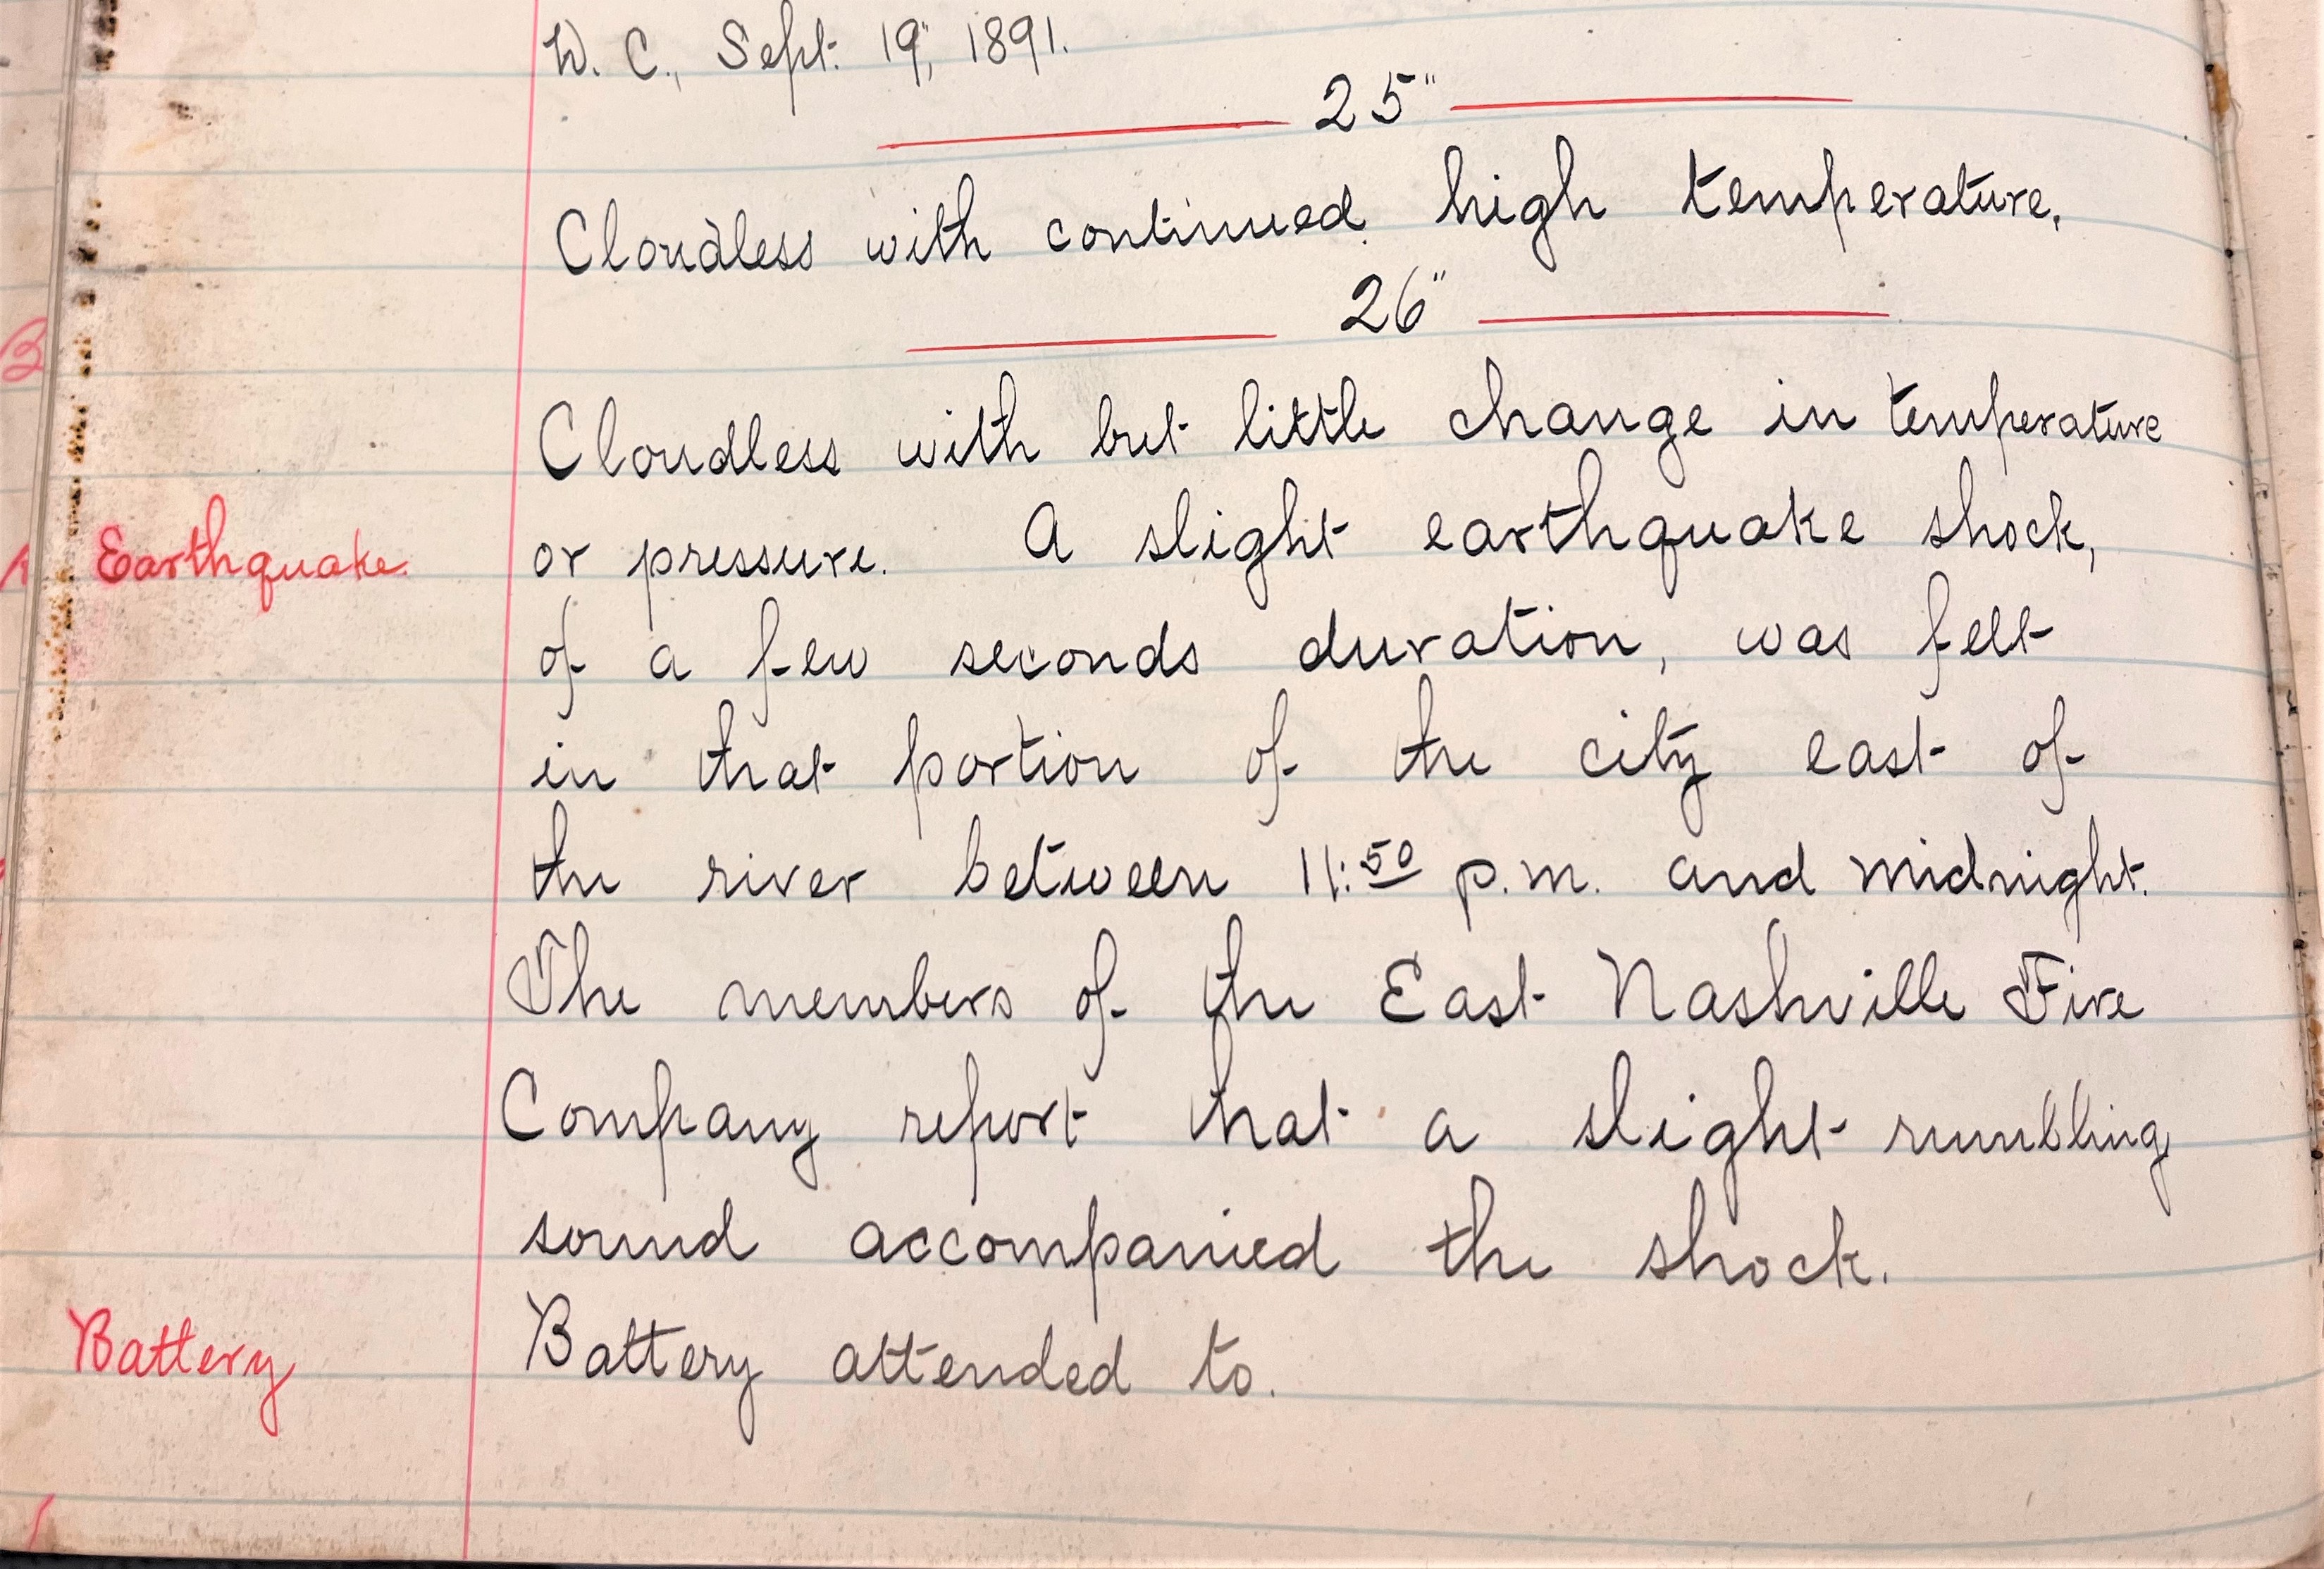 W. C., Sept. 19", 1891.
25"
Cloudless with continued high temperature.
26"
Cloudless with but little change in temperature
Earthquake or pressure. A slight earthquake shock,
of a few seconds duration, was felt
in that portion of the city east of
the river between 11:50 p.m. and midnight.
The members of the East Nashville Fire
Company report that a slight rumbling
sound accompanied the shock.
Battery Battery attended to.